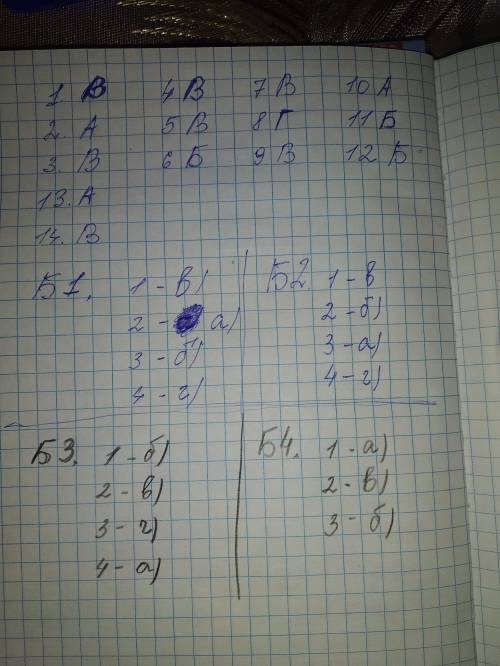 1 В 4 В 7 В 10 А
2. А 5 В 8 Г 11 Б
3. В 6 Б 9 В 12 Б
13. А
14. В
Б1. 1 - в)
2 - а)
3 - б)
4 - г)
Б2. 1 - в
2 - б)
3 - а)
4 - г)
Б3. 1 - б)
2 - в)
3 - г)
4 - а)
Б4. 1 - а)
2 - в)
3 - б)